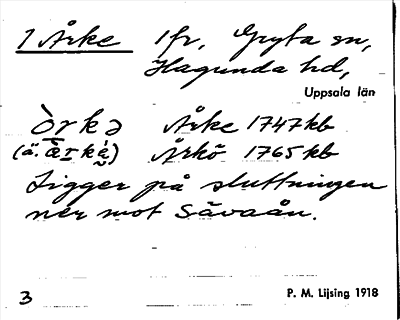 1 Årke 1 fr, Gryta sn,
Hagunda hd,
Uppsala län
òrkə Årke 1747 kb
(ä. ærkə̀) Årkö 1765 kb
Ligger på sluttningen
ner mot Sävaån.
3 P. M. Lijsing 1918